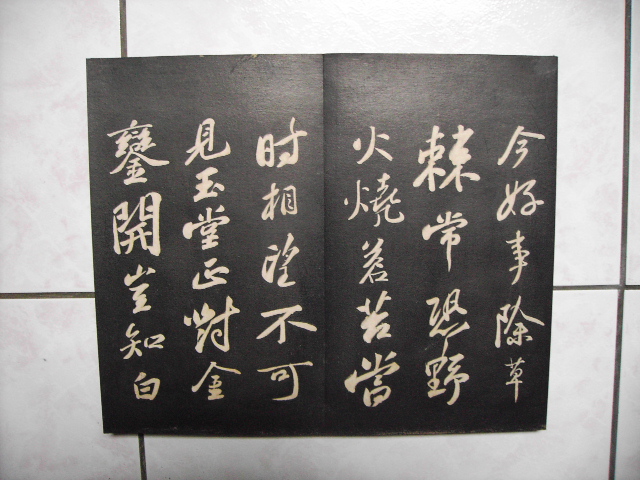 今好事除草
棘常恐野
火燒蒼苔當
时相望不可
見玉堂正對金
鑾開豈知白